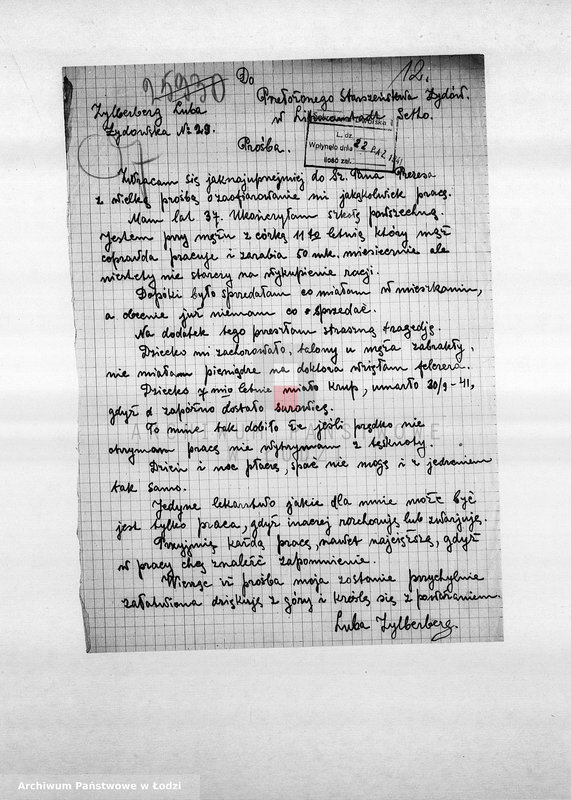 25930
12.
Do
Zylberberg Luba
Przełożonego Starszeństwa Żydów.
Żydowska № 29.
w Litzmannstadt Getto.
L. dz.
Wpłynęło dnia 22 PAŹ. 1941
Ilość zał.
Prośba.
Zwracam się jaknajuprzejmiej do Sz. Pana Prezesa
z wielką prośbą o zaofiarowanie mi jakąkolwiek pracę.
Mam lat 37. Ukończyłam szkołę powszechną.
Jestem przy mężu z córką 11 to letnią, który mąż
coprawda pracuje i zarabia 50 mk. miesięcznie ale
niestety nie starczy na wykupienie racji.
Dopóki było sprzedałam co miałam w mieszkaniu,
a obecnie już niemam co sprzedać.
Na dodatek tego przeszłam straszną tragedję.
Dziecko mi zachorowało, talony u męża zabrakły,
nie miałam pieniądze na doktora wzięłam felczera.
Dziecko 7 mio letnie miało krup, umarło 30/9 - 41,
gdyż za późno dostało surowicę.
To mnie tak dobiło że jeśli prędko nie
otrzymam pracę nie wytrzymam z tęsknoty.
Dzień i noc płaczę, spać nie mogę i z jedzeniem
tak samo.
Jedyne lekarstwo jakie dla mnie może być
jest tylko praca, gdyż inaczej rozchoruję lub zwarjuję.
Przyjmię każdą pracę, nawet najcięższą, gdyż
w pracy chcę znaleść zapomnienie.
Wierząc iż prośba moja zostanie przychylnie
załatwiona dziękuję z góry i kreślę się z poważaniem
Luba Zylberberg.
Archiwum Państwowe w Łodzi